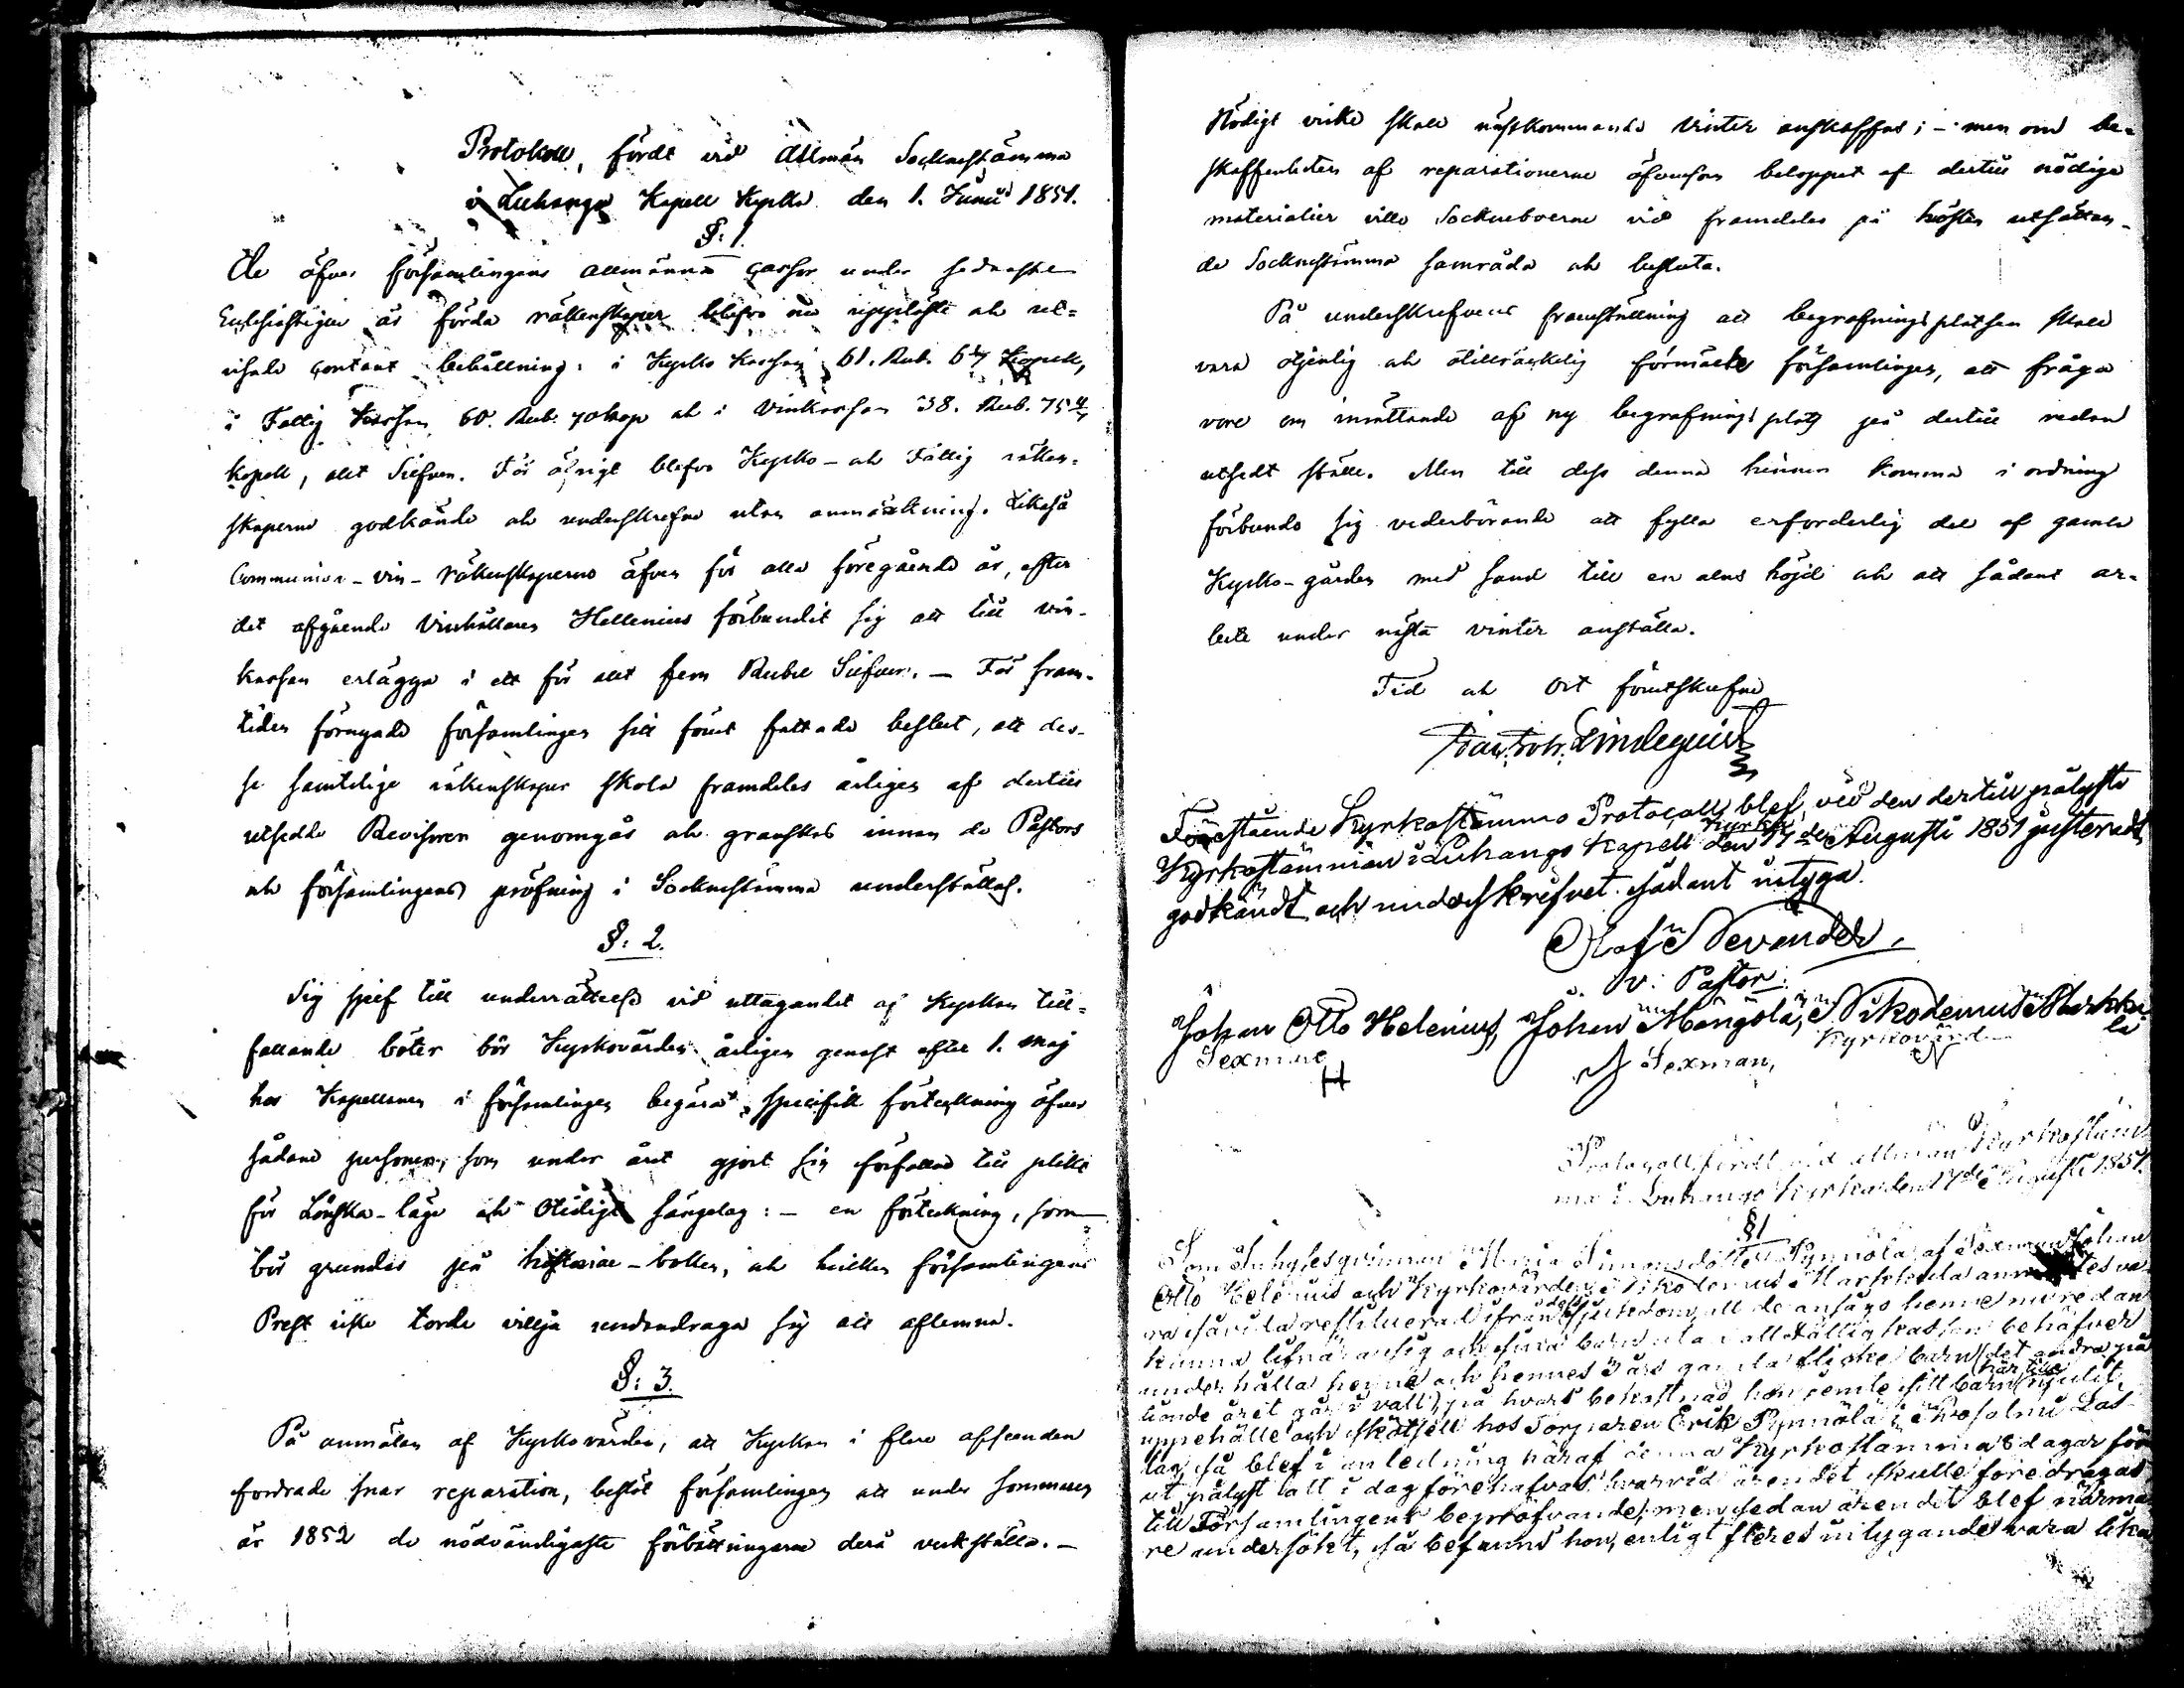 Protokoll, fördt vid Allmän Socknestämma
i Luhango Kapell Kyrka den 1. Junii 1851.
§: 1.
De öfver församlingens allmänna Cassor under sednaste
Ecclesiastique år förda räkenskaper blefvo nu uppläste och ut=
visade contant behållning: i Kyrko Kassan 61. Rub. 6 4/7 Kopek,
i Fattig Kassan 60. Rub. 70 kop och i Vinkassan 38. Rub. 75 4/7
kopek, allt Silfver. För öfrigt blefvo Kyrko- och Fattig räken=
skaperne godkände och underskrefne utan anmärkning. Likaså
Communion-vin-räkenskaperne äfven för alla föregående år, efter
det afgående Vinhållaren Hellenius förbundit sig att till vin-
kassan erlägga i ett för allt fem Rubel Silfver. — För fram-
tiden förnyade församlingen sitt förut fattade beslut, att des-
se samtelige räkenskaper skola framdeles årligen af dertill
utsedde Revisorer genomgås och granskas innan de Pastors
och församlingens pröfning i Socknestämma underställas.
§: 2.
Sig sjelf till underrättelse vid uttagandet af Kyrkan till=
fallande böter bör Kyrkovärden årligen genast efter 1. Maj
hos Kapellanen i församlingen begära specifik förteckning öfver
sådane personer, som under året gjort sig förfallne till plikt
för Lönska-läge och Otidigt sängelag: — en förteckning, som
bör grundas på historiae-boken, och hvilken församlingens
Prest icke torde vilja undandraga sig att aflemna.
§: 3.
På anmälan af Kyrkovärden, att Kyrkan i flere afseenden
fordrade snar reparation, beslöt församlingen att under sommaren
år 1852 de nödvändigaste förbättringarne derå verkställa. —
Nödigt virke skall nästkommande Vinter anskaffas; — men om be-
skaffenheten af reparationerne äfvensom beloppet af dertill nödige
materialier ville Sockneboerne vid framdeles på hösten utsättan-
de Socknestämma samråda och besluta.
På underskrefvens framställning att begrafningsplatsen skall
vara otjenlig och otillräckelig förmälte församlingen, att fråga
vore om inrättande af ny begrafnings plats på dertill redan
utsedt ställe. Men till dess denna hinner komma i ordning
förbundo sig vederbörande att fylla erforderlig del af gamla
Kyrko-gården med sand till en alns höjd och att sådant ar-
bete under nästa vinter anställa.
Tid och Ort förutskrefne
Lindequist
Förestående Kyrkostämmo Protocoll blef, vid den dertill pålyste
Kyrkostämman i Luhango Kapell Kyrka den 17de Augusti 1851 justeradt,
godkändt och underskrifvet. sådant intyga.
Olof Nevander,
v: Pastor.
Johan Otto Helenius, Johan Mångola, Nikodemus Markku-
la
Sexman Sexman, Kyrkovärd
Protocoll fördt vid allmän Kyrkostäm-
ma i Luhango Kyrka den 17de Augusti 1851.
§1
Som Inhyseqvinnan Maria Simonsdotter Pynnölä af Sexman Johan
Otto Helenius och Kyrkovärden Nikodemus Markkula anmältes va-
ra såvida restituerad ifrån dess sjukdom, att de ansågo henne mera än
kunna lifnära sig och sina barn utan att Fattigkassan behöfver
underhålla henne och hennes 3 års gamla flicke barn (det andra på
tionde året går i vall), på hvars bekostnad hon jemte sitt barn härtills njutit
uppehälle och skötsell hos Torparen Erik Pynnölä i
lag, så blef i anledning häraf denna Kyrkostämma 8 dagar för
ut pålyst att i dag förehafvas, hvarvid ärendet skulle föredragas
till Församlingens bepröfvande; men sedan ärendet blef närma-
re undersökt, så befanns hon, enligt fleres intygande vara lika